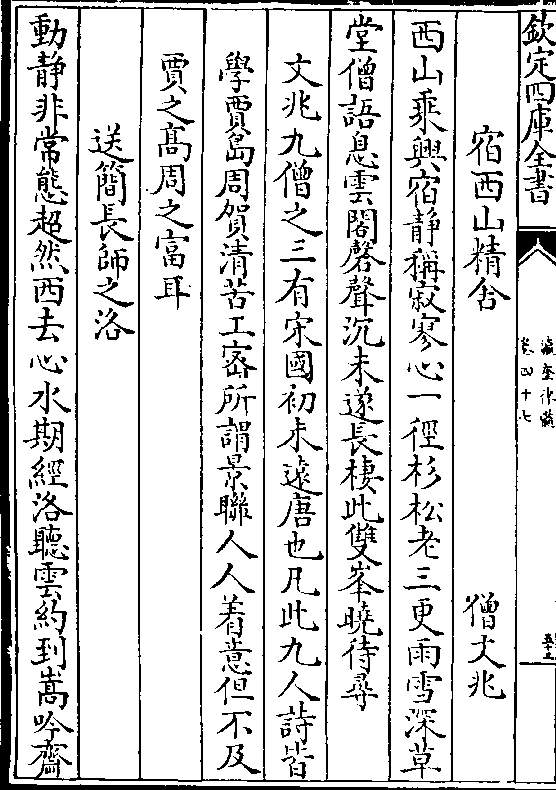 欽定四庫全書
瀛奎律髓
卷四十七
宿西山精舍
僧文兆
西山乘興宿静稱寂寥心一徑杉松老三更雨雪深草
堂僧語息雲閣磬聲沉未遂長棲此雙峯曉待尋
文兆九僧之三有宋國初未遠唐也凡此九人詩皆
學賈島周賀清苦工密所謂景聯人人着意但不及
賈之高周之富耳
送簡長師之洛
動静非常態超然西去心水期經洛聽雲約到嵩吟齋